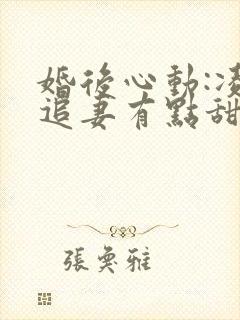 婚後心動:凌
追妻有點甜
張奐雅